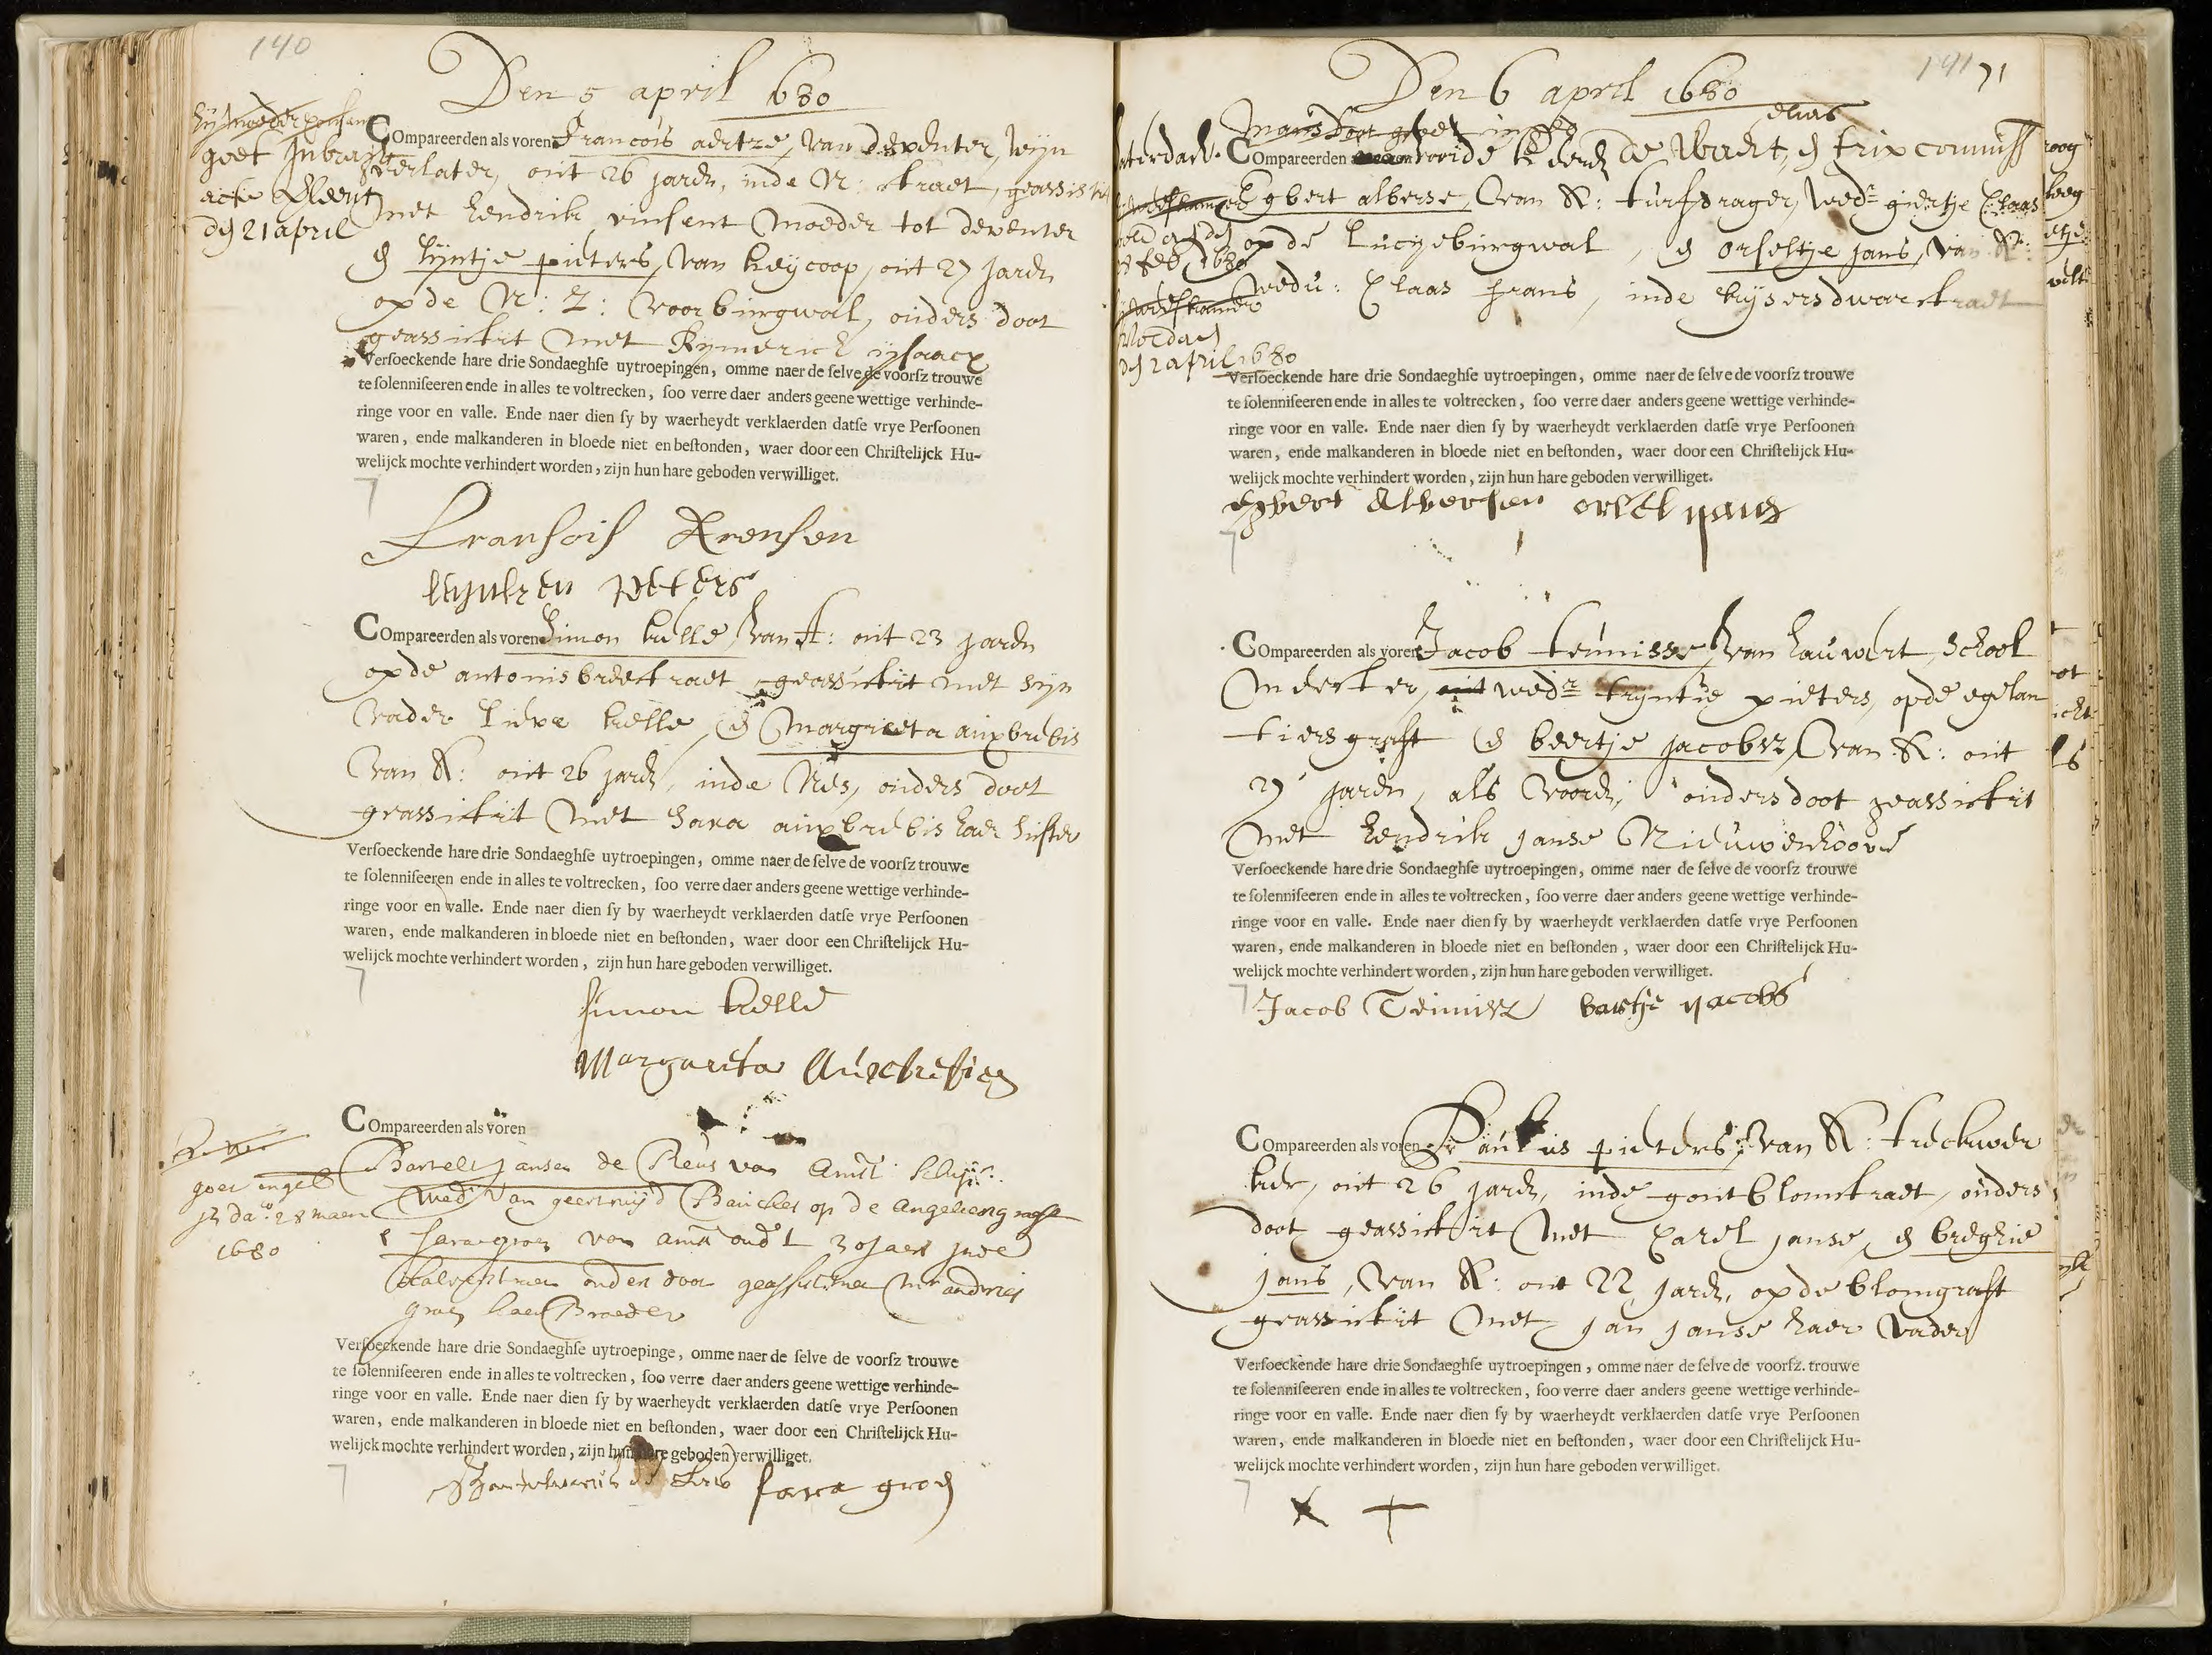 140
Den 5 april 1680
hij moeder consent
goet inbrage
acte
den 21 april
Compareerden als voren Francois aertze, van deventer, wijn
verlater, out 26 jaren, inde N: straet, geassisteert
met hendrik vinsent moeder tot deventer
en lijntje pieters, van heijcoop, out 27 jaren
op de N: Z: voorburgwal, ouders doot
geassisteert met Rijmerich ijsaacx
Versoeckende hare drie Sondaeghse uytroepingen, omme naer de selve de voorsz trouwe
te solenniseeren ende in alles te voltrecken, soo verre daer anders geene wettige verhinde-
ringe voor en valle. Ende naer dien sy by waerheydt verklaerden datse vrye Persoonen
waren, ende malkanderen in bloede niet en bestonden, waer door een Christelijck Hu-
welijck mochte verhindert worden, zijn hun hare geboden verwilliget.
Fransois Arensen
lijntien peters
Compareerden als voren Simon kelle, van A: out 23 jaren
op de antonisbreestraet geassisteert met sijn
vader lieve kelle, en Margrieta auxbrebis
van A: out 26 jaren, inde Nes, ouders doot
geassisteert met Sara auxbrebis haer suster
Versoeckende hare drie Sondaeghse uytroepingen, omme naer de selve de voorsz trouwe
te solenniseeren ende in alles te voltrecken, soo verre daer anders geene wettige verhinde-
ringe voor en valle. Ende naer dien sy by waerheydt verklaerden datse vrye Persoonen
waren, ende malkanderen in bloede niet en bestonden, waer door een Christelijck Hu-
welijck mochte verhindert worden, zijn hun hare geboden verwilliget.
Simon kelle
Margarita Auxbrebies
Compareerden als voren
1680
Bartelt jansen de Reus van Amst
wedr van geertruijd Bauckes op de Angeliersgraft
en Sara groen van Amst oudt 30 jaer inde
kalverstraet ouders doot geassisteert met andries
groen haer Broeder
Versoeckende hare drie Sondaeghse uytroepinge, omme naer de selve de voorsz trouwe
te solenniseeren ende in alles te voltrecken, soo verre daer anders geene wettige verhinde-
ringe voor en valle. Ende naer dien sy by waerheydt verklaerden datse vrye Persoonen
waren, ende malkanderen in bloede niet en bestonden, waer door een Christelijck Hu-
welijck mochte verhindert worden, zijn hun hare geboden verwilliget.
sara groen
141 71
Den 6 april 1680
Compareerden voor de heeren de Waert, en trip commiss
Egbert alberse, van A: turfdrager, wedr giertje Claas
op de Lucijeburgwal, en orseltje jans, van A:
wedu: Claas frans, inde keijsersdwarstraet
feb 1680
den 2 april 1680
Versoeckende hare drie Sondaeghse uytroepingen, omme naer de selve de voorsz trouwe
te solenniseeren ende in alles te voltrecken, soo verre daer anders geene wettige verhinde-
ringe voor en valle. Ende naer dien sy by waerheydt verklaerden datse vrye Persoonen
waren, ende malkanderen in bloede niet en bestonden, waer door een Christelijck Hu-
welijck mochte verhindert worden, zijn hun hare geboden verwilliget.
Egbert Albersen orseltl jans
Compareerden als voren Jacob teunisse, van hauwert, school
meester, out wedr trijntie pieters, op de egelan
tiersgraft en beertje jacobsz, van A: out
27 jaren, als vooren, ouders doot geassisteert
met hendrik janse Nieuwenhoove
Versoeckende hare drie Sondaeghse uytroepingen, omme naer de selve de voorsz trouwe
te solenniseeren ende in alles te voltrecken, soo verre daer anders geene wettige verhinde-
ringe voor en valle. Ende naer dien sy by waerheydt verklaerden datse vrye Persoonen
waren, ende malkanderen in bloede niet en bestonden, waer door een Christelijck Hu-
welijck mochte verhindert worden, zijn hun hare geboden verwilliget.
Jacob Teunisz bartje jacobs
Compareerden als voren Paulus pieters, van A: treckwer
ker, out 26 jaren, inde goutbloomstraet, ouders
doot geassisteert met Carel janse, en breghie
jans, van A: out 22 jaren, op de blomgraft
geassisteert met jan janse haer vader
Versoeckende hare drie Sondaeghse uytroepingen, omme naer de selve de voorsz. trouwe
te solenniseeren ende in alles te voltrecken, soo verre daer anders geene wettige verhinde-
ringe voor en valle. Ende naer dien sy by waerheydt verklaerden datse vrye Persoonen
waren, ende malkanderen in bloede niet en bestonden, waer door een Christelijck Hu-
welijck mochte verhindert worden, zijn hun hare geboden verwilliget.